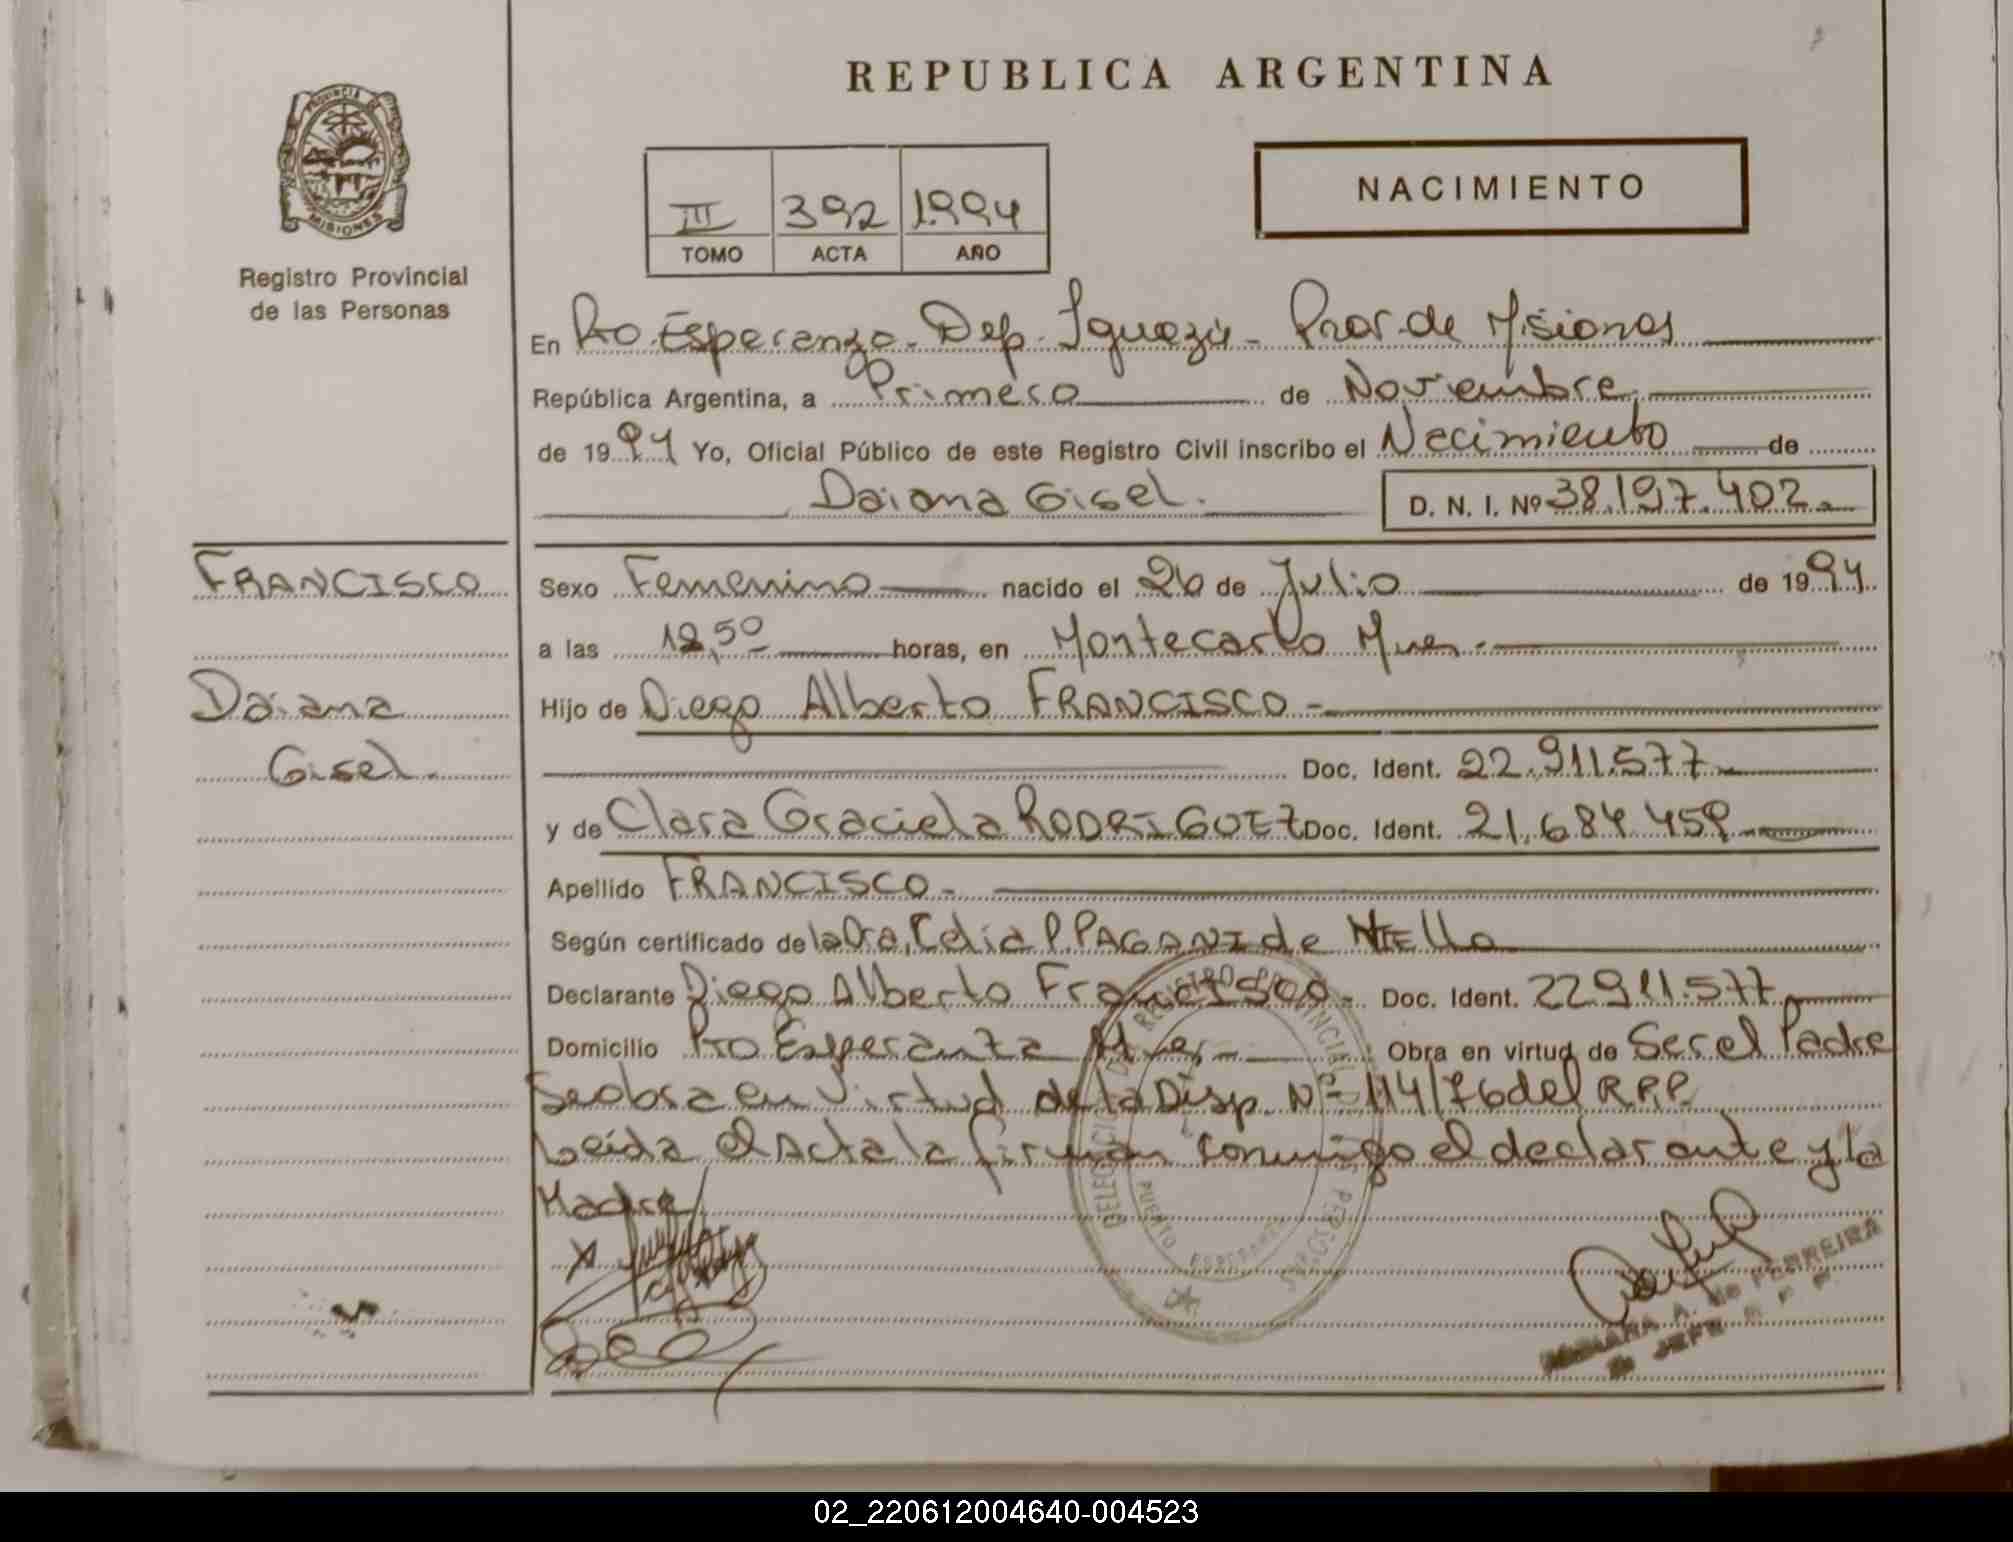 REPUBLICA ARGENTINA
PROVINCIA DE
MISIONES
Registro Provincial
de las Personas
III 392 1994
TOMO ACTA AÑO
NACIMIENTO
En Pto. Esperanza - Dep. Iguazú - Prov. de Misiones
República Argentina, a Primero de Noviembre
de 1994 Yo, Oficial Público de este Registro Civil inscribo el Nacimiento de
Daiana Gisel. D. N. I. Nº 38.197.402.
FRANCISCO
Daiana
Gisel.
Sexo Femenino nacido el 26 de Julio de 1994.
a las horas, en Montecarlo Mnes.
Hijo de Diego Alberto FRANCISCO -
Doc. Ident. 22.911.577
y de Clara Graciela RODRIGUEZ Doc. Ident. 21.684.459
Apellido FRANCISCO -
Según certificado de la Dra. Celia P PAGANI de NIELLO
Declarante Diego Alberto Francisco - Doc. Ident. 22.911.577
Domicilio Pto Esperanza Mnes - Obra en virtud de Ser el Padre
Se obra en virtud de la Disp. Nº 114/76 del R.P.P.
Leída el Acta la firman conmigo el declarante y la
Madre
REGISTRO PROVINCIAL
PERSONAS
PUERTO ESPERANZA
A. de FERREIRA
JEFE
02_220612004640-004523